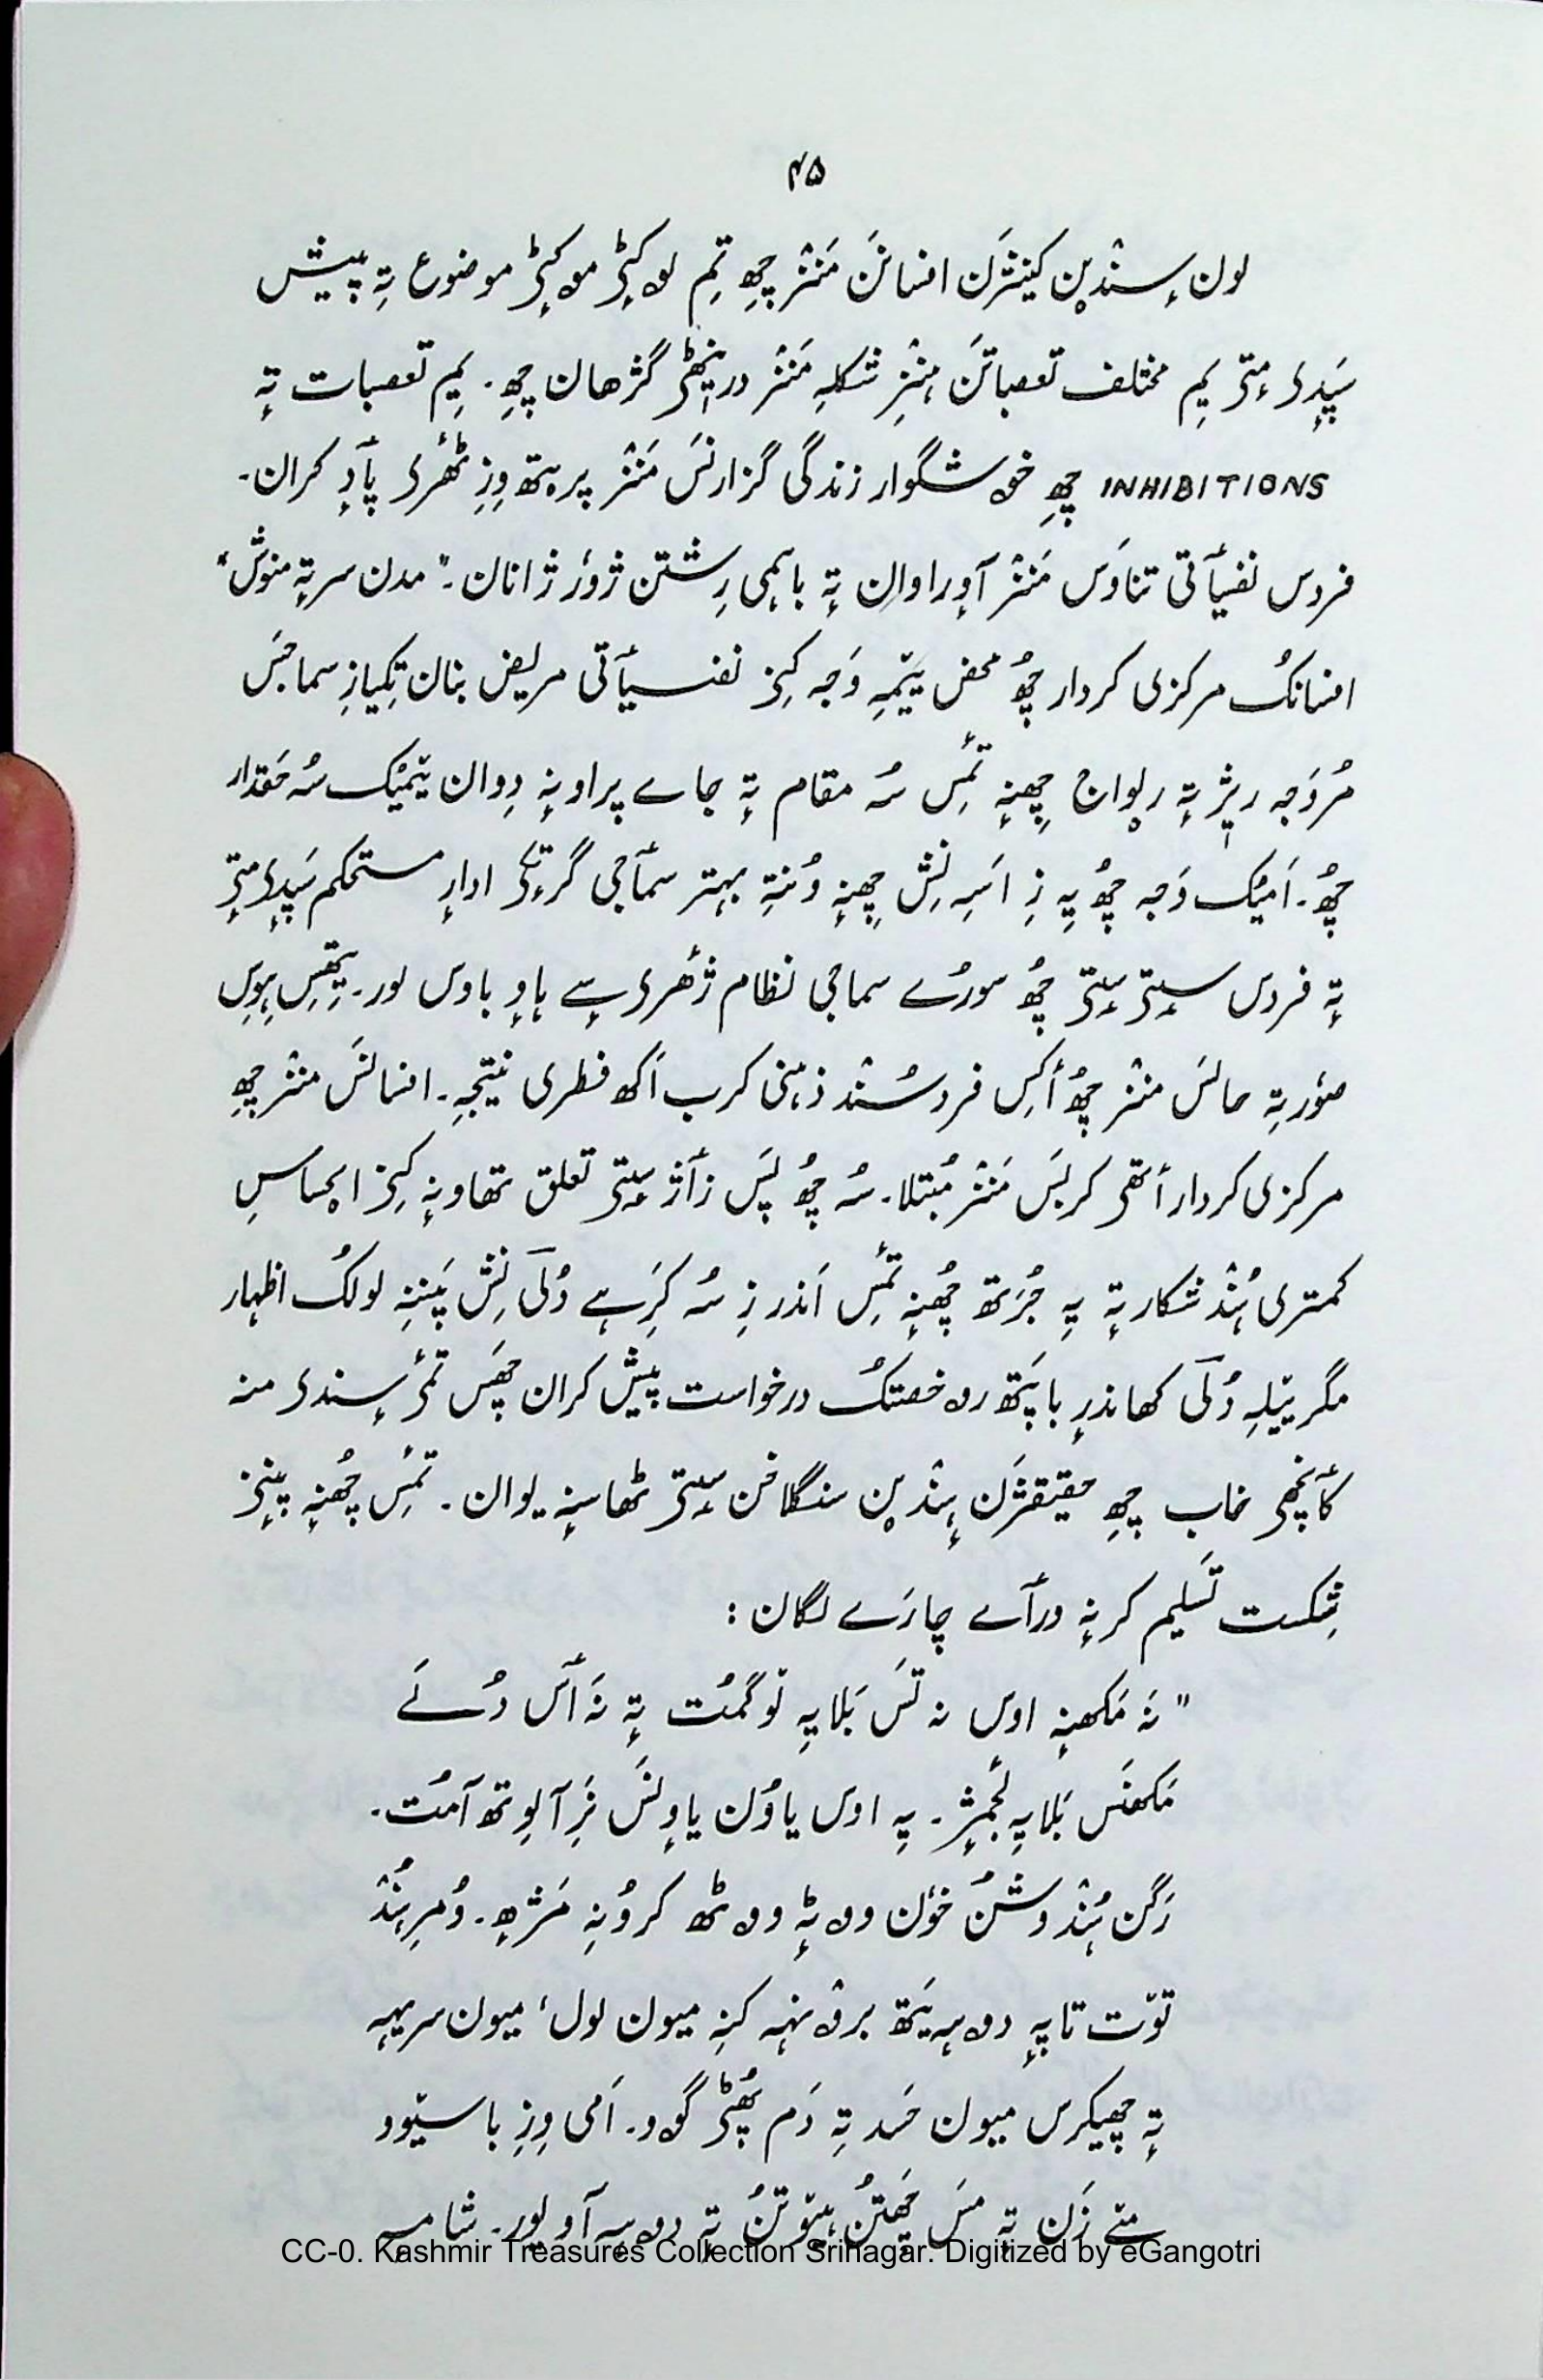 ۴۵
لون سٕندؠن کینٛژن افسانَن مَنٛز چھِ تِم لۄکٕٹؠ مۄکٕٹؠ موضوع تہِ پیش
سَپٕدۍ مٕتۍ یِم مختلف تعصباتَن ہٕنٛزِ شکلہِ مَنٛز درینٛٹھۍ گژھان چھِ۔ یِم تعصبات تہٕ
INHIBITIONS چھِ خۄشگوار زندگی گزارنَس مَنٛز پریتھ وِزِ ٹھٔرۍ پٲدٕ کران۔
فردس نفسیٲتی تناوَس مَنٛز آوراوان تہٕ باہمی رِشتن ژورٕ ژانان۔ "مدن سر تہٕ منوش"
افسانُک مرکزی کردار چھُ محض یَتمہِ وَجہ کِنۍ نفسیٲتی مریض بنان تِکیازِ سماجَس
مُرَوجہ ریژ تہٕ رِواج چھِنہٕ تَمِس سُہ مقام تہٕ جاے پراونہٕ دِوان یتمِیُک سُہ حَقدار
چھُ۔ اَمیُک وَجہ چھُ یہِ زِ اَسہِ نِش چھِنہٕ وُنتہِ بہتر سمٲجی گرتٕکۍ ادارٕ مستحکم سَپٕدۍ مٕتۍ
تہٕ فردس سٟتۍ سٟتۍ چھُ سورُے سماجی نظام ژھرۍ سٕے ہاوٕ باوس لور۔ یِتھِس ہِوِس
صورتہِ حالس منٛز چھُ اَکِس فردسُنٛد ذہنی کرب اَکھ فطری نتیجہِ۔ افسانَس منٛز چھِ
مرکزی کردار اَتھۍ کربَس مَنٛز مُبتلا۔ سُہ چھُ پَس زٲژ سٟتۍ تعلق تھاونہٕ کِنۍ احساسِ
کمتری ہُنٛد شکار تہٕ یہِ جُرَتھ چھُنہٕ تَمِس اَندر زِ سُہ کَرِہے دُلَی نِش پَننہِ لولُک اظہار
مگر ییٚلہِ دُلَی کھاندرٕ باپَتھ رۄخصتُک درخواست پیش کران چھَس تٔمۍ سٕندۍ منہ
کٲنٛچھۍ خاب چھِ حقیقژَن ہِنٛدؠن سنگلاخن سٟتۍ ٹھاسنہٕ یوان۔ تَمِس چھُنہٕ پَننۍ
شِکست تَسلیم کرنہٕ ورٲے چارَے لگان :
"نَہ مَکھنہٕ اوس نہ تَس بَلایہِ توگمُت تہٕ نَہ ٲس دُلَے
مَکھنَس بَلایہِ لٔجمٕژ۔ یہِ اوس یاوُن یاوِنَس نَزِ آلوِتھ آمُت۔
رَگن ہُنٛد وشُن خوٗن وۄٹہٕ وۄٹھ کروُنہِ مَژھِ۔ وُمرِ ہُنٛد
توٚت تاپہٕ دۄہہ یَتھ برۄنہہ کَنہِ میون لول، میون سریہہ
تہٕ چھیکرس میون حَسد تہِ دَم پھُٹۍ گوو۔ اَمی وِزِ باسیوو
مےٚ زَن تہٕ مَس چھَتُن ہیوٚتُن تہٕ دۄہہ آو لور۔ شامہ
CC-0. Kashmir Treasures Collection Srinagar. Digitized by eGangotri